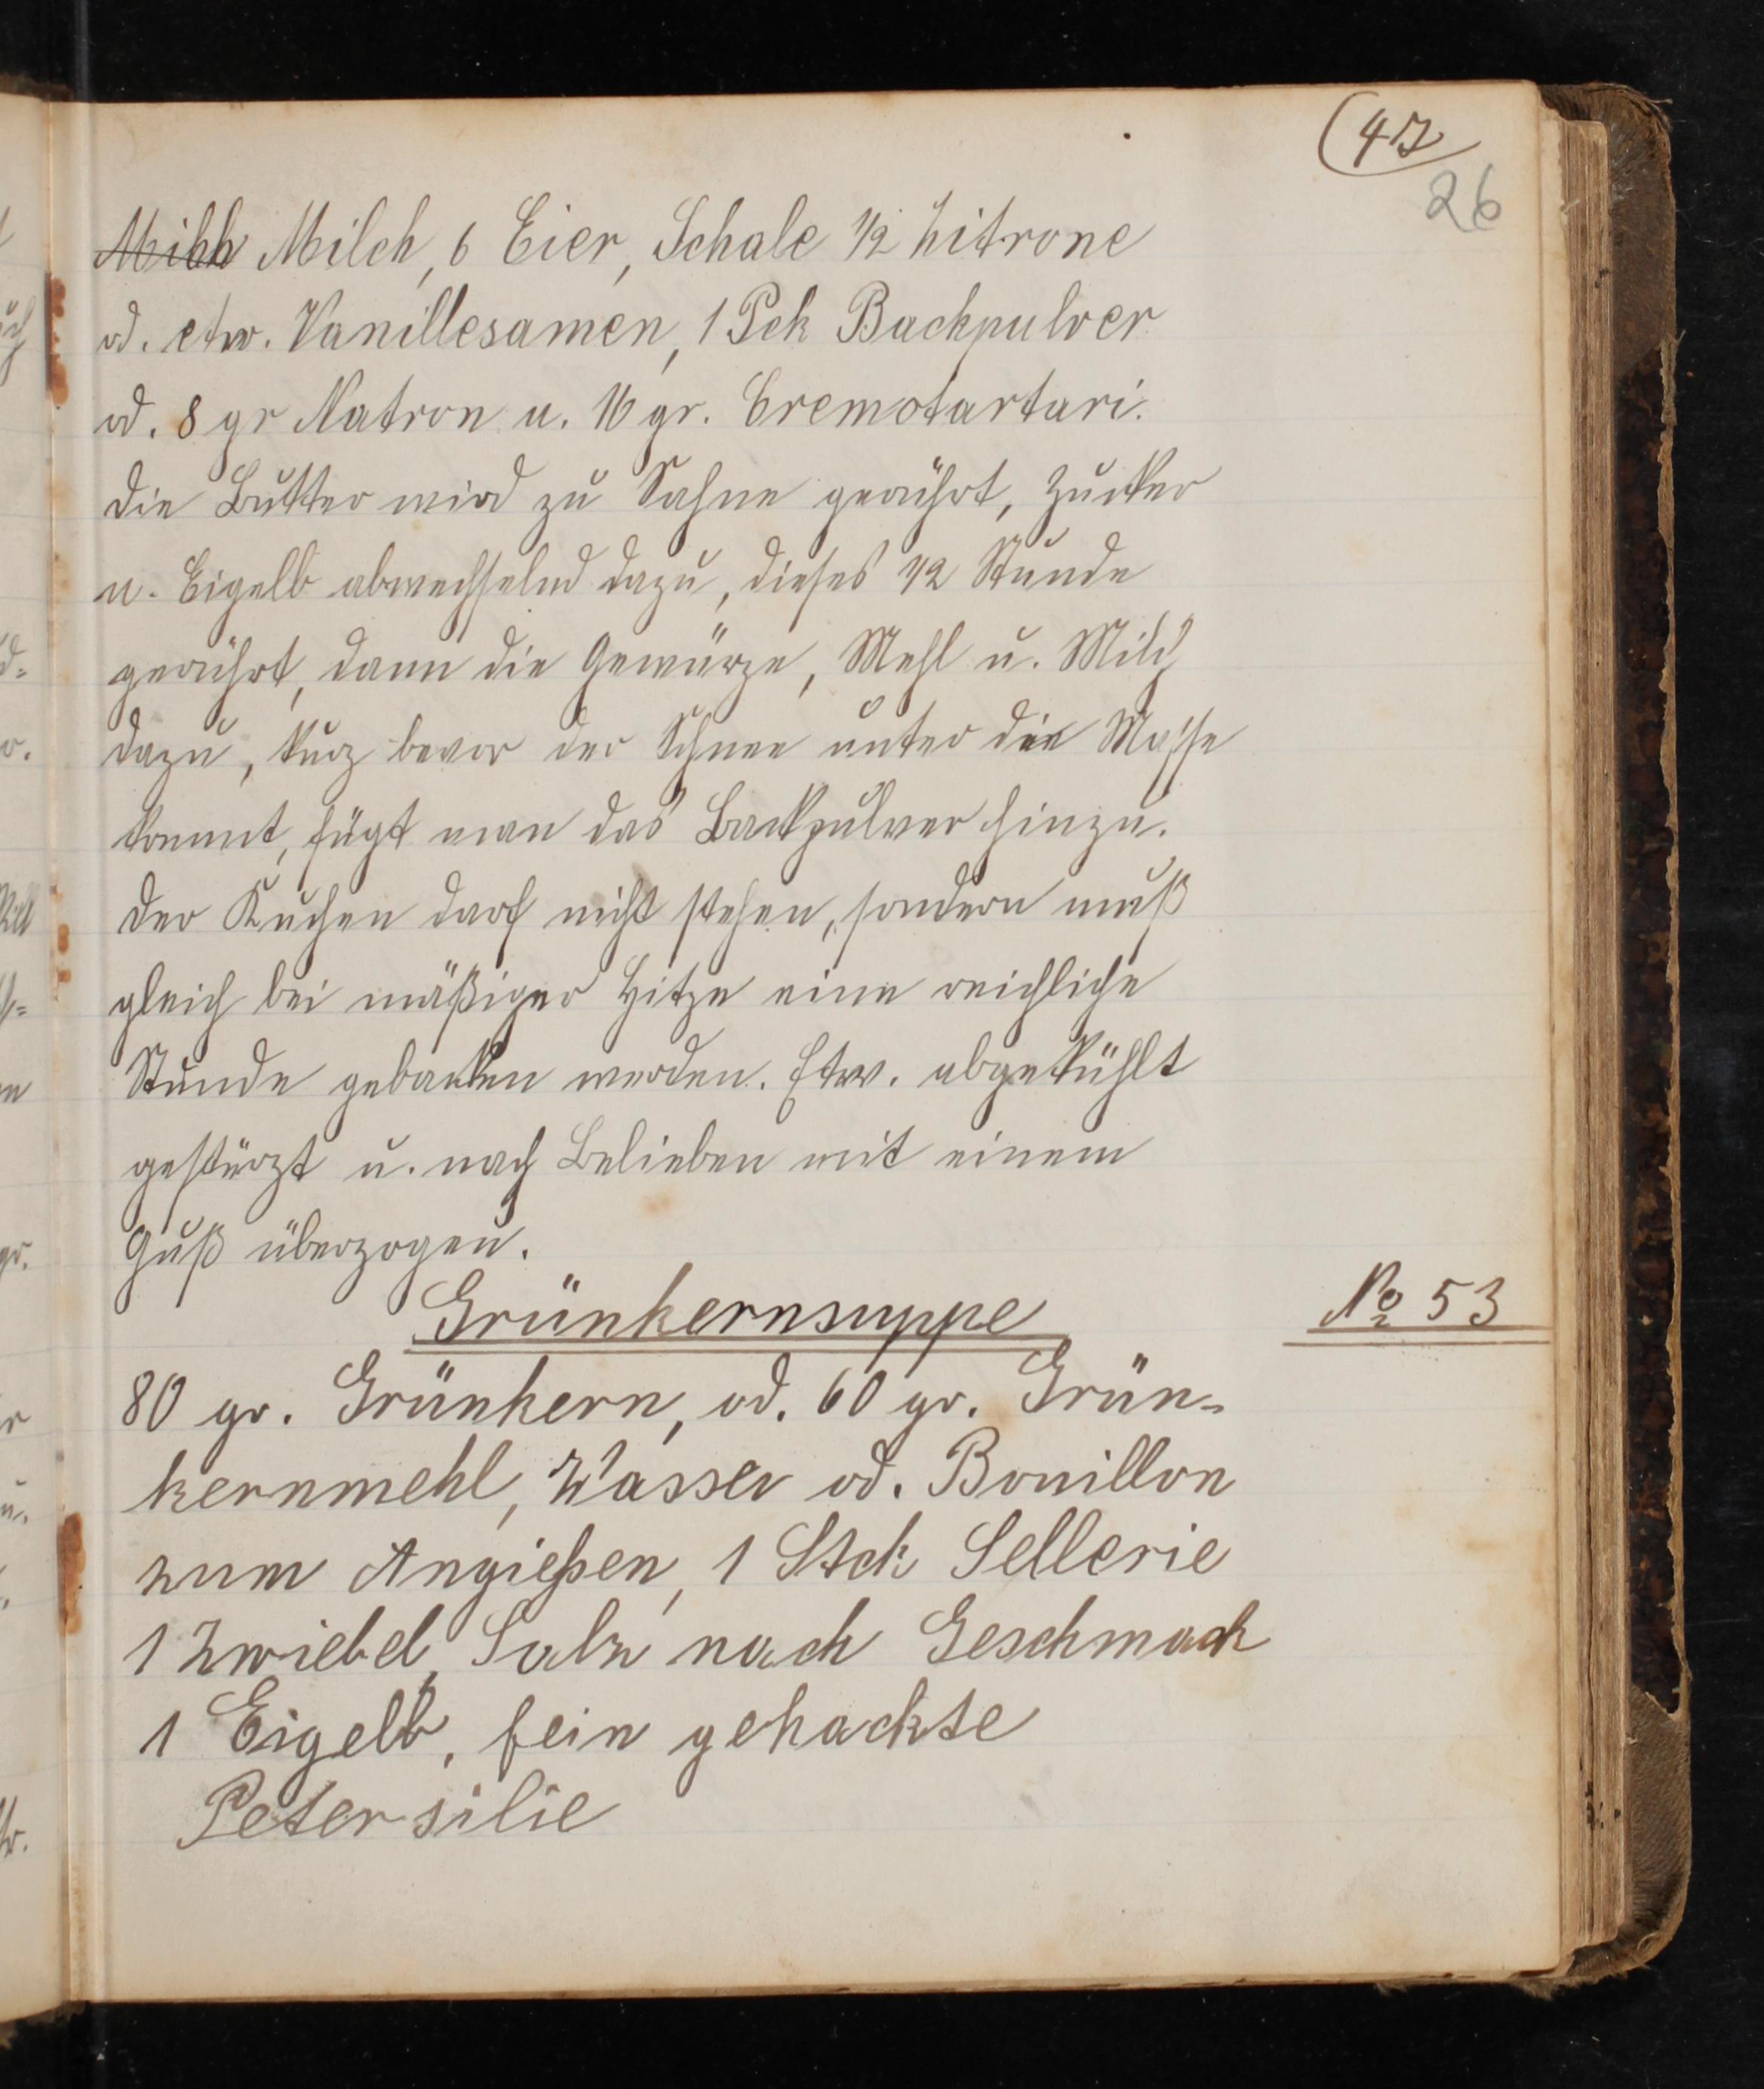 (47
26
Milch Milch, 6 Eier, Schale 1/2 Zitrone
od. etw. Vanillesamen, 1 Pck Backpulver
od. 8 gr Natron u. 16 gr. Cremotartari.
Die Butter wird zu Sahne gerührt, Zucker
u. Eigelb abwechselnd dazu, dieses 1/2 Stunde
gerührt, dann die Gewürze, Mehl u. Milch
dazu, kurz bevor der Schnee unter die Masse
kommt, fügt man das Backpulver hinzu.
Der Kuchen darf nicht stehen, sondern muß
gleich bei mäßiger Hitze eine reichliche
Stunde gebacken werden. Etw. abgekühlt
gestürzt u. nach Belieben mit einem
Guß überzogen.
Grünkernsuppe
No 53
80 gr. Grünkern, od. 60 gr. Grün-
kernmehl, Wasser od. Bouillon
zum Angießen, 1 Stck Sellerie
1 Zwiebel, Salz nach Geschmack
1 Eigelb, fein gehackte
Petersilie